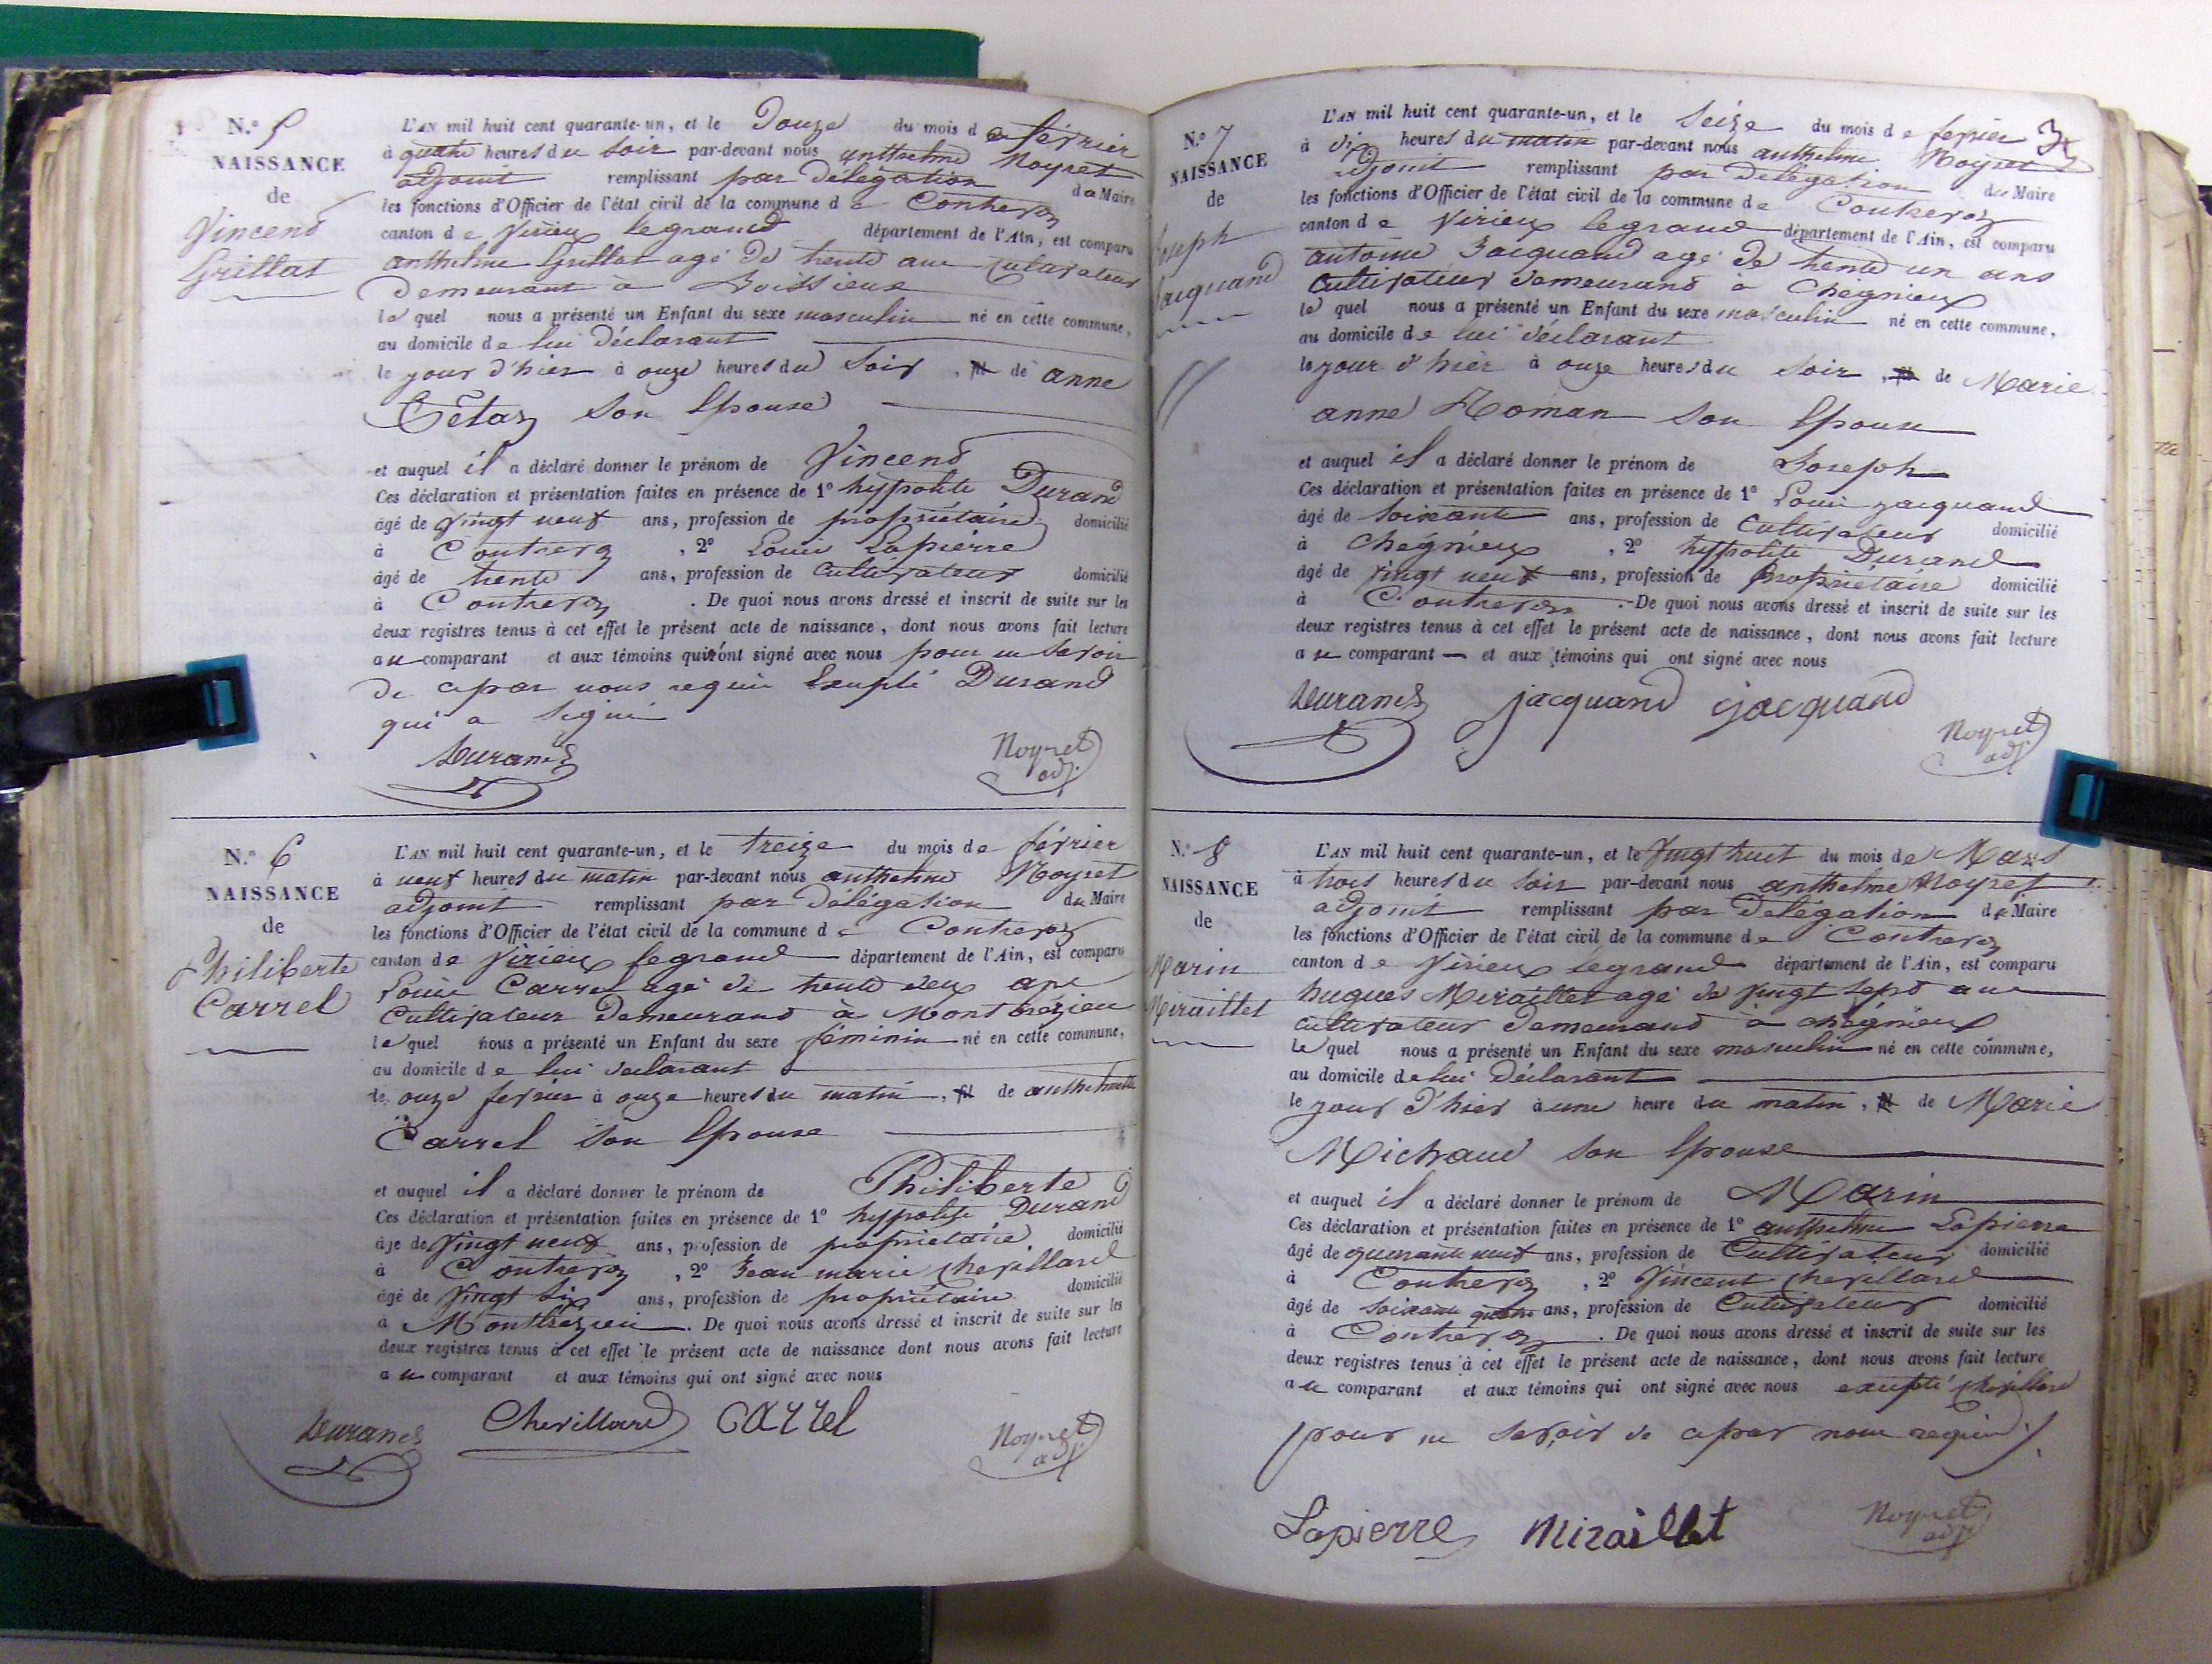 N.° 5
NAISSANCE
de
Vincend
Grillat
L'AN mil huit cent quarante-un, et le Douze du mois de février
à quatre heures du soir par-devant nous anthelme Noyret
adjoint remplissant par Délégation du Maire
les fonctions d'Officier de l'état civil de la commune de Contrevoz
canton de Virieu legrand département de l'Ain, est comparu
anthelme Grillat agé de trente ans Cultivateur
Demeurant à Boissieux
lequel nous a présenté un Enfant du sexe masculin né en cette commune,
au domicile de lui Déclarant
le jour d'hier à onze heures du soir, fil de anne
Tétaz son Epouse
et auquel il a déclaré donner le prénom de Vincend
Ces déclaration et présentation faites en présence de 1° hyppolite Durand
âgé de vingt neuf ans, profession de propriétaire domicilié
à Contrevoz, 2° Louis Lapierre
âgé de trente ans, profession de Cultivateur domicilié
à Contrevoz. De quoi nous avons dressé et inscrit de suite sur les
deux registres tenus à cet effet le présent acte de naissance, dont nous avons fait lecture
au comparant et aux témoins qui n'ont signé avec nous pour ne savoir
de cepar nous requis Excepté Durand
qui a signé
Durand
Noyret
adj.
N.° 6
NAISSANCE
de
Philiberte
Carrel
L'AN mil huit cent quarante-un, et le treize du mois de février
à neuf heures du matin par-devant nous anthelme Noyret
adjoint remplissant par Délégation du Maire
les fonctions d'Officier de l'état civil de la commune de Contrevoz
canton de Virieux legrand département de l'Ain, est comparu
Louis Carrel agé de trente deux ans
Cultivateur Demeurand à Montbrézieu
lequel nous a présenté un Enfant du sexe féminin né en cette commune,
au domicile de lui déclarant
le onze fevrier à onze heures du matin, fil de anthelmette
Carrel son Epouse
et auquel il a déclaré donner le prénom de Philiberte
Ces déclaration et présentation faites en présence de 1° hyppolite Durand
âge de vingt neuf ans, profession de propriétaire domicilié
à Contrevoz, 2° Jean marie chevillard
âgé de vingt six ans, profession de propriétaire domicilié
à Montbrézieu. De quoi nous avons dressé et inscrit de suite sur les
deux registres tenus à cet effet le présent acte de naissance dont nous avons fait lecture
au comparant et aux témoins qui ont signé avec nous
Durand Chevillard carrel
Noyret
adj.
N.° 7
NAISSANCE
de
Joseph
Jacquand
L'AN mil huit cent quarante-un, et le Seize du mois de fevrier
à dix heures du matin par-devant nous anthelme Noyret
adjoint remplissant par Delegation du Maire
les fonctions d'Officier de l'état civil de la commune de Contrevoz
canton de Virieux legrand département de l'Ain, est comparu
antoine Jacquand agé de trente un ans
Cultivateur demeurand à Chégnieux
lequel nous a présenté un Enfant du sexe masculin né en cette commune,
au domicile de lui déclarant
le jour d'hier à onze heures du soir, fil de Marie
anne Roman son Epouse
et auquel il a déclaré donner le prénom de Joseph
Ces déclaration et présentation faites en présence de 1° Louis jacquand
âgé de soixante ans, profession de Cultivateur domicilié
à Chégnieux, 2° hyppolite Durand
âgé de vingt neuf ans, profession de Propriétaire domicilié
à Contrevoz. De quoi nous avons dressé et inscrit de suite sur les
deux registres tenus à cet effet le présent acte de naissance, dont nous avons fait lecture
au comparant et aux témoins qui ont signé avec nous
Durand jacquand jacquand
Noyret
adj.
N.° 8
NAISSANCE
de
Marin
Miraillet
L'AN mil huit cent quarante-un, et le Vingt huit du mois de Mars
à trois heures du soir par-devant nous anthelme Noyret
adjoint remplissant par Delégation de Maire
les fonctions d'Officier de l'état civil de la commune de Contrevoz
canton de Virieux legrand département de l'Ain, est comparu
hugues Miraillet agé de Vingt sept ans
cultivateur demeurand à chégnieux
lequel nous a présenté un Enfant du sexe masculin né en cette commune,
au domicile de lui Déclarant
le jour d'hier à une heure du matin, fil de Marie
Michaud son Epouse
et auquel il a déclaré donner le prénom de Marin
Ces déclaration et présentation faites en présence de 1° anthelme Lapierre
âgé de quarante neuf ans, profession de Cultivateur domicilié
à Contrevoz, 2° Vincent chevillard
âgé de soixante quatre ans, profession de Cultivateur domicilié
à Contrevoz. De quoi nous avons dressé et inscrit de suite sur les
deux registres tenus à cet effet le présent acte de naissance, dont nous avons fait lecture
au comparant et aux témoins qui ont signé avec nous excepté chevillard
pour ne savoir de cepar nous requis
Lapierre Miraillet
Noyret
adj.